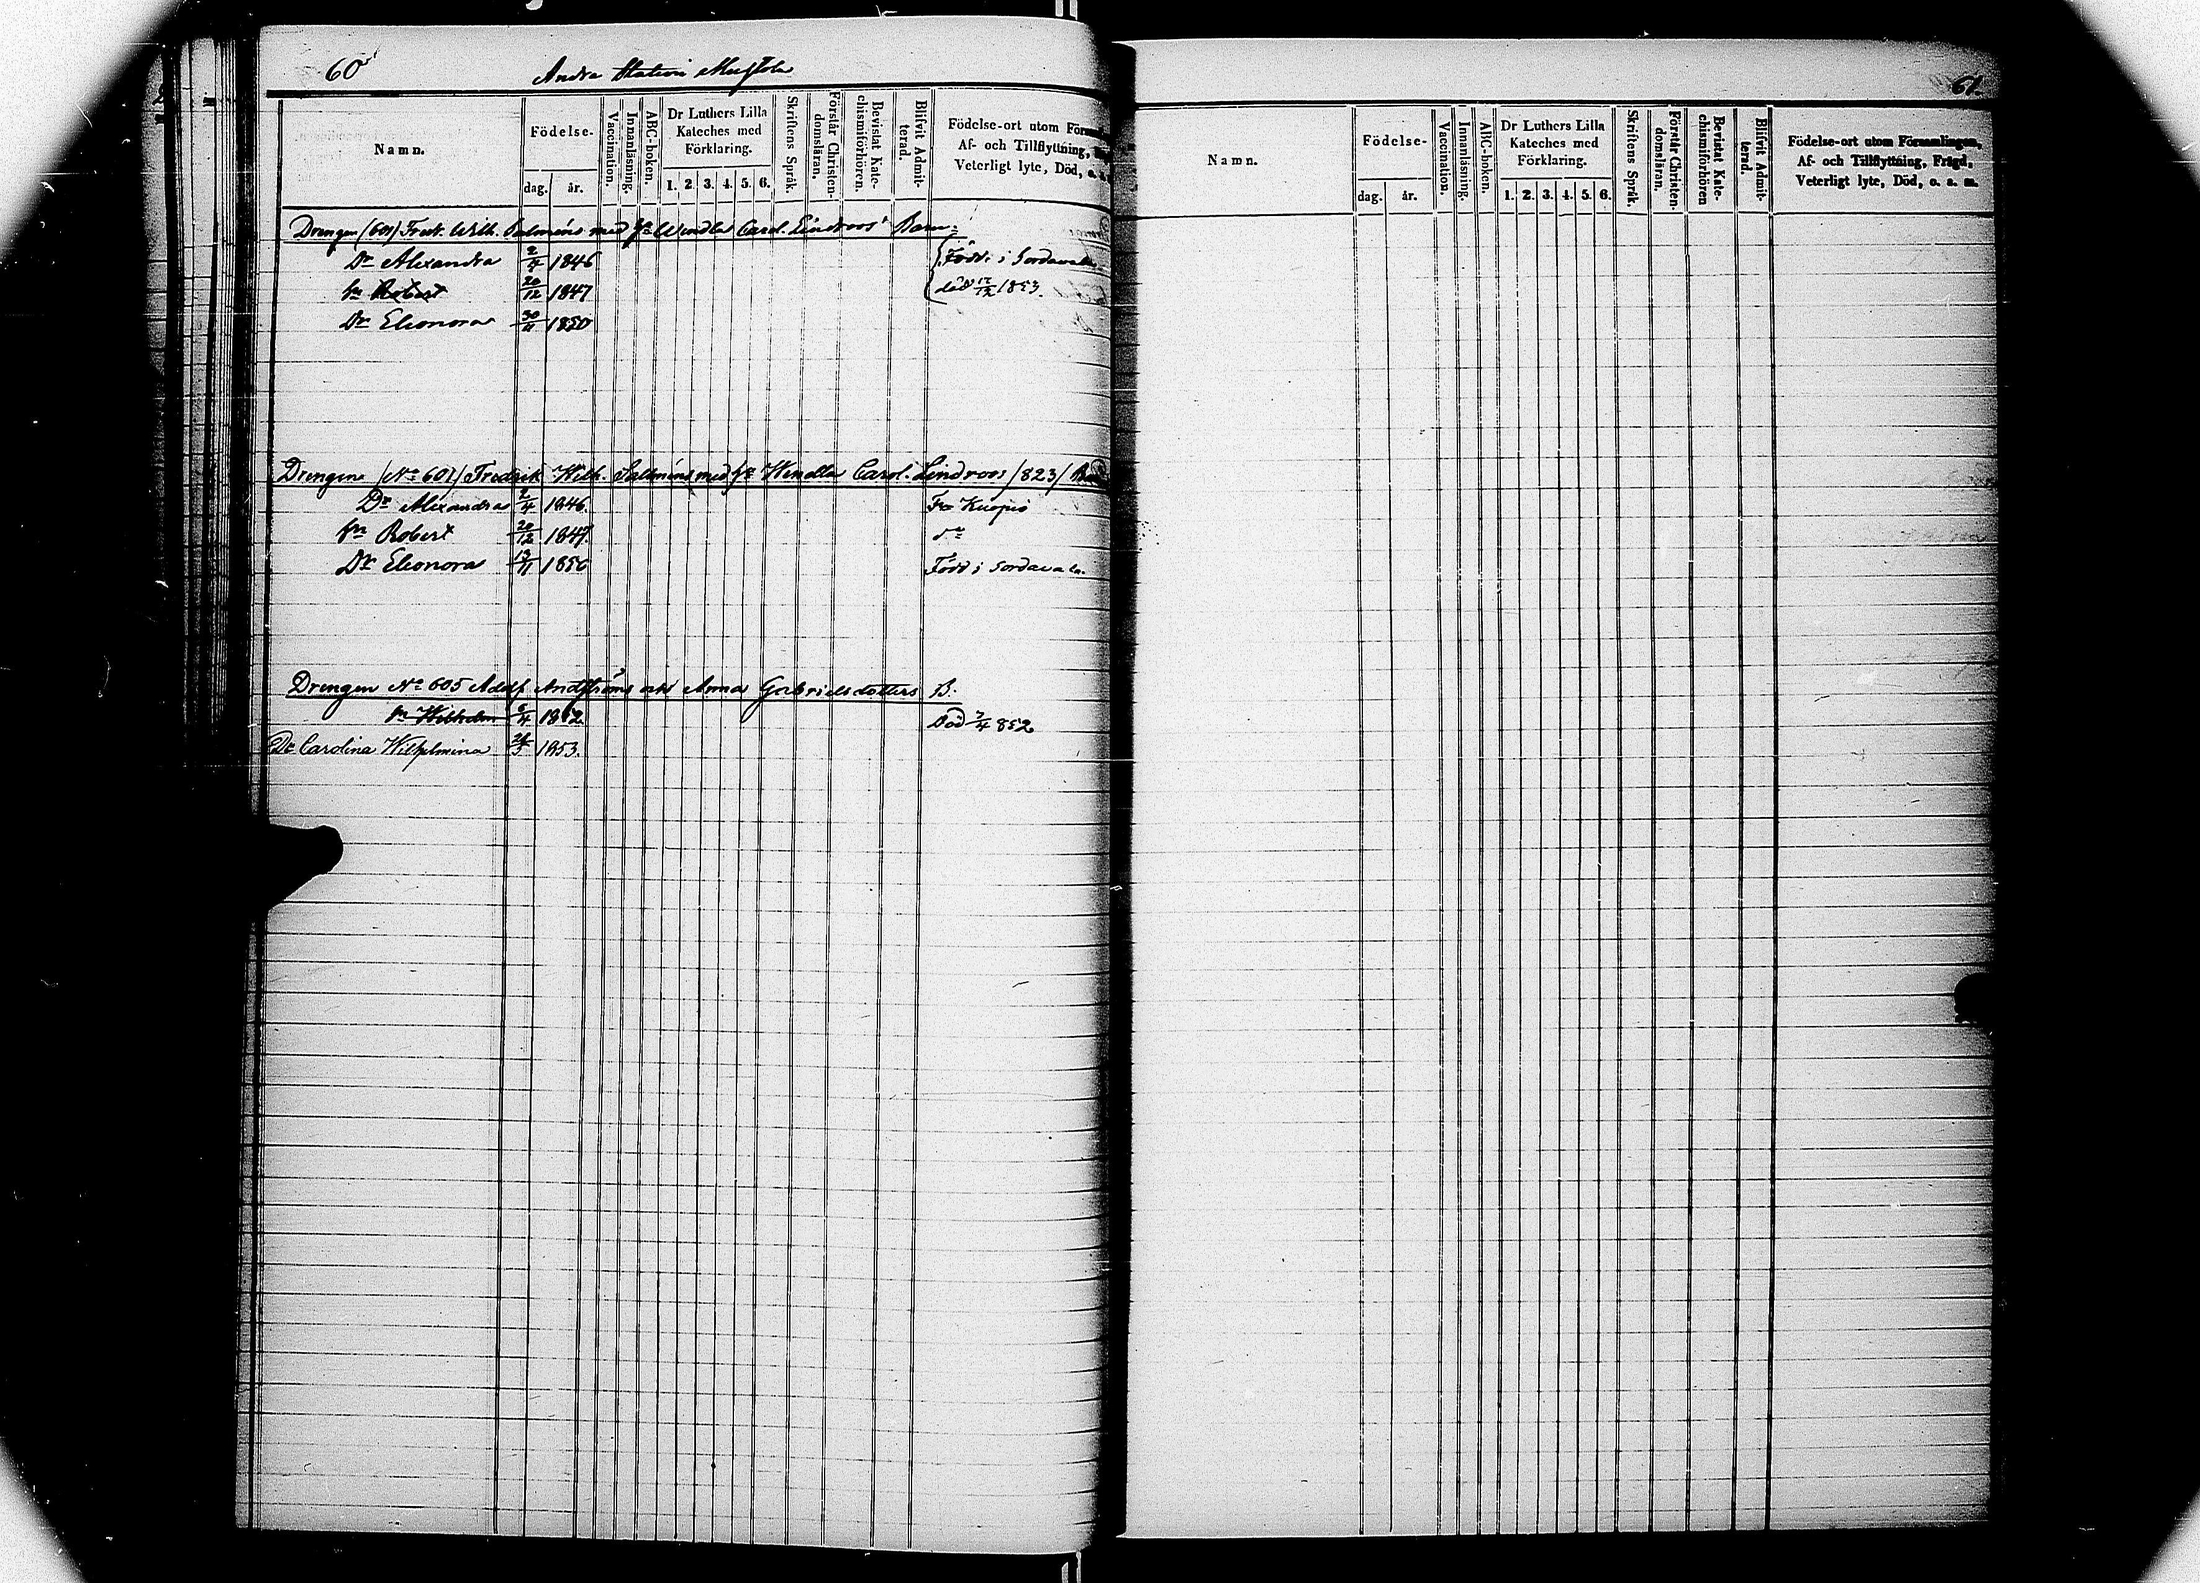 60
Andra Station Mustola
Namn.
Födelse-
dag. år.
Vaccination.
Innanläsning.
ABC-boken.
Dr Luthers Lilla
Kateches med
Förklaring.
1. 2. 3. 4. 5. 6.
Skriftens Språk.
Förstår Christen-
domsläran.
Bevistat Kate-
chismiförhören.
Blifvit Admit-
terad.
Födelse-ort utom
Af- och Tillflyttning,
Veterligt lyte, Död,
Drengen (601) Fredr. Wilh. Salméns med Hu Wendla Carol. Lindroos' Barn
Dr Alexandra 2/4 1846 Född i Sordavala
Sn Robert 20/12 1847 död 12/12 1853.
Dr Eleonora 30/11 1850
Drengen (No 601) Fredrik Wilh. Salméns med Hu Wendla Carol. Lindroos /823/
Dr Alexandra 2/4 1846. Fr Kuopio
Sn Robert 20/12 1847.
Dr Eleonora 13/11 1850 Född i Sordavala.
Drengen No 605 Adolf Andströms och Anna Gabrielsdotters B.
Sn Wilhelm 1852 Död 7/4 852
Dr Carolina Wilhelmina 1853.
61.
Namn.
Födelse-
dag. år.
Vaccination.
Innanläsning.
ABC-boken.
Dr Luthers Lilla
Kateches med
Förklaring.
1. 2. 3. 4. 5. 6.
Skriftens Språk.
Förstår Christen-
domsläran.
Bevistat Kate-
chismiförhören
Blifvit Admit-
terad.
Födelse-ort utom Församlingen,
Af- och Tillflyttning, Frägd,
Veterligt lyte, Död, o. s. m.